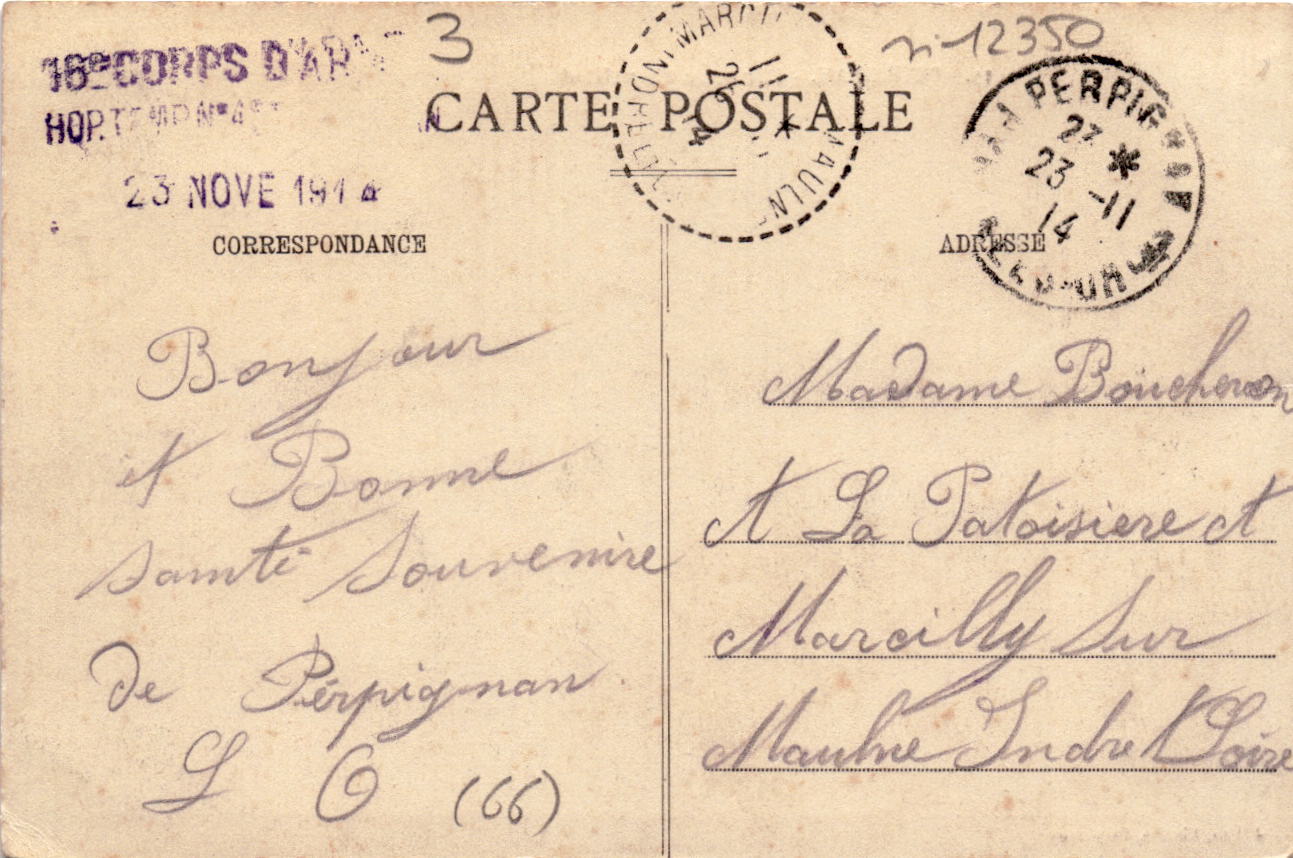 16e CORPS D'AR
3
ni-12350
HOP. TEMP. N° 4
CARTE POSTALE
23 NOVE 1914
MAULN
PERPIGNAN
23
23-11
14
CORRESPONDANCE
ADRESSE
Bonjour
et Bonne
santé Souvenire
de Pérpignan
L O
(66)
Madame Boucheron
A La Patoisiere et
Marcilly Sur
Maulne Indre et Loire